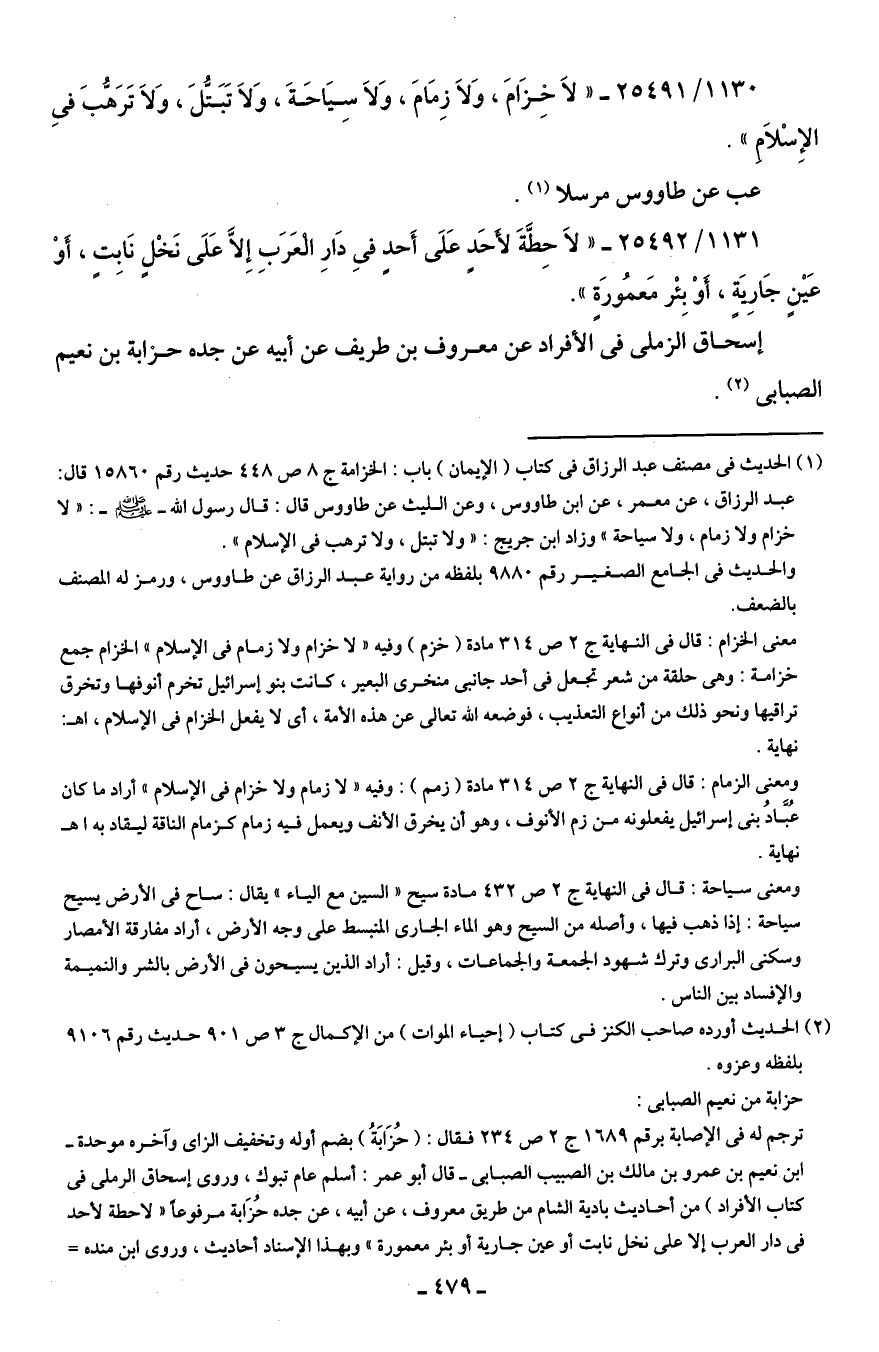 ٢٥٤٩١/١١٣٠ ـ « لاَ خِزَامَ ، وَلاَ زِمَامَ ، وَلاَ سِيَاحَةَ ، وَلاَ تَبَتُّلَ ، وَلاَ تَرَهُّبَ فِى
الإِسْلاَمِ » .
عب عن طاووس مرسلا (١) .
٢٥٤٩٢/١١٣١ ـ « لاَ حِطَّةَ لأَحَدٍ عَلَى أَحدٍ فىِ دَارِ الْعَرَبِ إِلاَّ عَلَى نَخْلٍ نَابِتٍ ، أَوْ
عَيْنٍ جَارِيَةٍ ، أَوْ بِئْرٍ مَعمُورَةٍ ».
إسحاق الزملى فى الأفراد عن معروف بن طريف عن أبيه عن جده حزابة بن نعيم
الصبابى (٢) .
(١) الحديث فى مصنف عبد الرزاق فى كتاب ( الإيمان ) باب : الخزامة ج ٨ ص ٤٤٨ حديث رقم ١٥٨٦٠ قال:
عبد الرزاق ، عن معمر ، عن ابن طاووس ، وعن الليث عن طاووس قال : قال رسول الله ـ ﷺ ـ : « لا
خزام ولا زمام ، ولا سياحة » وزاد ابن جريج : « ولا تبتل ، ولا ترهب فى الإسلام » .
والحديث فى الجامع الصغير رقم ٩٨٨٠ بلفظه من رواية عبد الرزاق عن طاووس ، ورمز له المصنف
بالضعف.
معنى الخزام : قال فى النهاية ج ٢ ص ٣١٤ مادة ( خزم ) وفيه « لا خزام ولا زمام فى الإسلام » الخزام جمع
خزامة : وهى حلقة من شعر تجعل فى أحد جانبى منخرى البعير ، كانت بنو إسرائيل تخرم أنوفها وتخرق
تراقيها ونحو ذلك من أنواع التعذيب ، فوضعه الله تعالى عن هذه الأمة ، أى لا يفعل الخزام فى الإسلام ، اهـ:
نهاية .
ومعنى الزمام : قال فى النهاية ج ٢ ص ٣١٤ مادة ( زمم ) : وفيه « لا زمام ولا خزام فى الإسلام » أراد ما كان
عُبَّادُ بنى إسرائيل يفعلونه من زم الأنوف ، وهو أن يخرق الأنف ويعمل فيه زمام كزمام الناقة ليقاد به ا هـ
نهاية .
ومعنى سياحة : قال فى النهاية ج ٢ ص ٤٣٢ مادة سيح « السين مع الياء » يقال : ساح فى الأرض يسيح
سياحة : إذا ذهب فيها ، وأصله من السيح وهو الماء الجارى المنبسط على وجه الأرض ، أراد مفارقة الأمصار
وسكنى البرارى وترك شهود الجمعة والجماعات ، وقيل : أراد الذين يسيحون فى الأرض بالشر والنميمة
والإفساد بين الناس .
(٢) الحديث أورده صاحب الكنز فى كتاب ( إحياء الموات ) من الإكمال ج ٣ ص ٩٠١ حديث رقم ٩١٠٦
بلفظه وعزوه .
حزابة من نعيم الصبابى :
ترجم له فى الإصابة برقم ١٦٨٩ ج ٢ ص ٢٣٤ فقال : ( حُزَابَةُ ) بضم أوله وتخفيف الزاى وآخره موحدة ـ
ابن نعيم بن عمرو بن مالك بن الصبيب الصبابى ـ قال أبو عمر : أسلم عام تبوك ، وروى إسحاق الرملى فى
كتاب الأفراد ) من أحاديث بادية الشام من طريق معروف ، عن أبيه ، عن جده حُزَابة مرفوعاً « لاحطة لأحد
فى دار العرب إلا على نخل نابت أو عين جارية أو بئر معمورة » وبهذا الإسناد أحاديث ، وروى ابن منده =
ـ ٤٧٩ ـ